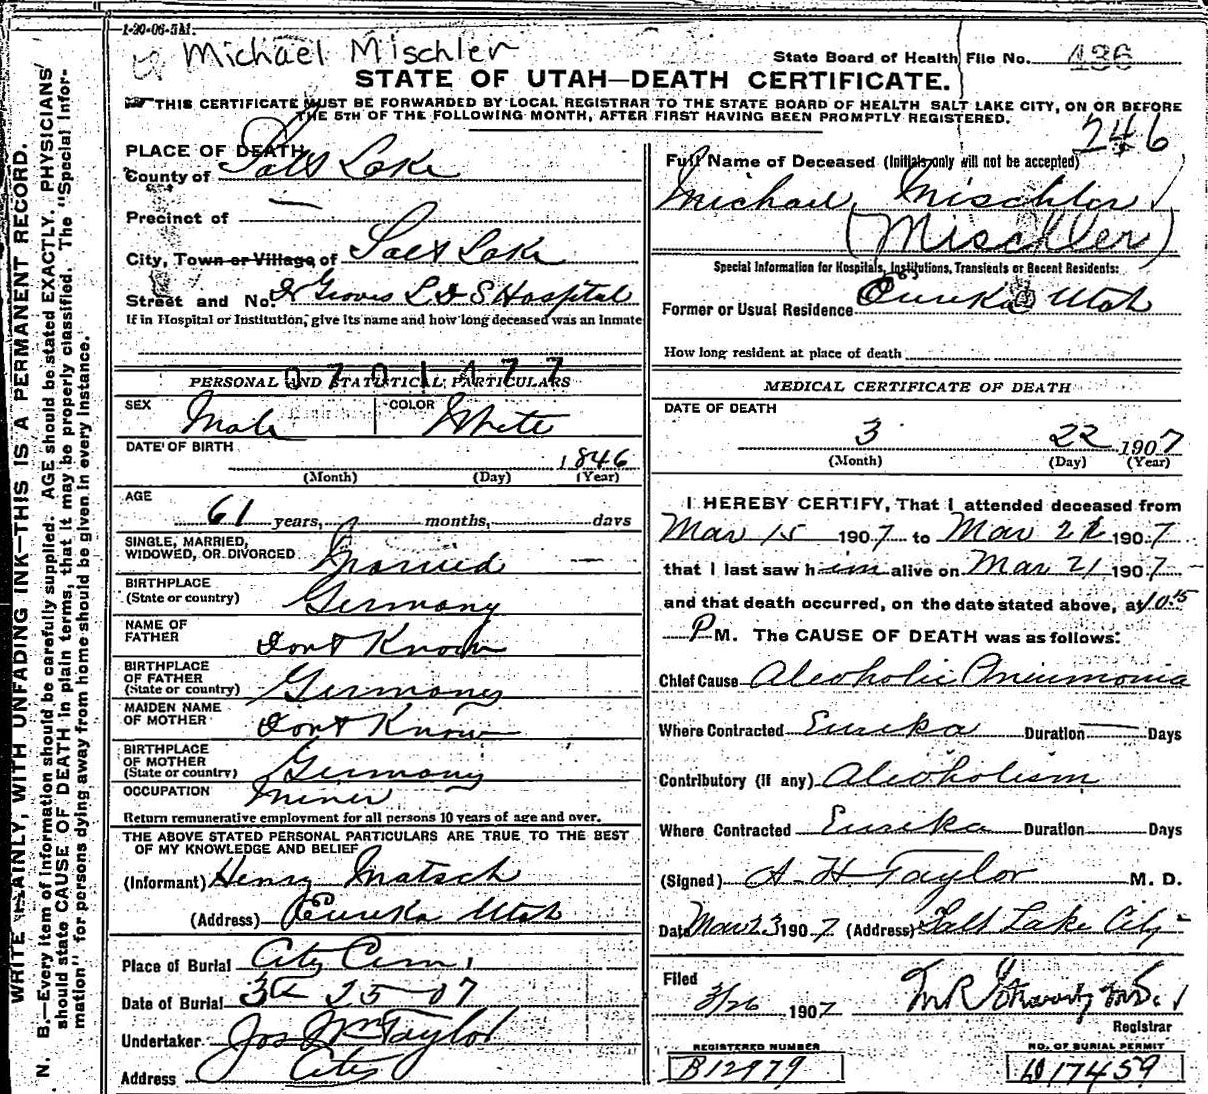 1-20-06-5M.
Michael Mischler
State Board of Health File No. 436
STATE OF UTAH—DEATH CERTIFICATE.
THIS CERTIFICATE MUST BE FORWARDED BY LOCAL REGISTRAR TO THE STATE BOARD OF HEALTH SALT LAKE CITY, ON OR BEFORE
THE 5TH OF THE FOLLOWING MONTH, AFTER FIRST HAVING BEEN PROMPTLY REGISTERED.
246
WRITE PLAINLY, WITH UNFADING INK—THIS IS A PERMANENT RECORD.
N. B.—Every item of information should be carefully supplied. AGE should be stated EXACTLY. PHYSICIANS
should state CAUSE OF DEATH in plain terms, that it may be properly classified. The "Special Infor-
mation" for persons dying away from home should be given in every instance.
PLACE OF DEATH
County of Salt Lake
Precinct of —
City, Town or Village of Salt Lake
Street and No. Dr Groves L D S Hospital
If in Hospital or Institution, give its name and how long deceased was an inmate
0701477
PERSONAL AND STATISTICAL PARTICULARS
SEX Male COLOR White
DATE OF BIRTH 1846
(Month) (Day) (Year)
AGE
61 years, months, days
SINGLE, MARRIED,
WIDOWED, OR DIVORCED Married —
BIRTHPLACE
(State or country) Germany
NAME OF
FATHER Dont Know
BIRTHPLACE
OF FATHER
(State or country) Germany
MAIDEN NAME
OF MOTHER Dont Know
BIRTHPLACE
OF MOTHER
(State or country) Germany
OCCUPATION Miner
Return remunerative employment for all persons 10 years of age and over.
THE ABOVE STATED PERSONAL PARTICULARS ARE TRUE TO THE BEST
OF MY KNOWLEDGE AND BELIEF
(Informant) Henry Matsch
(Address) Eureka Utah
Place of Burial City Cem.
Date of Burial 3 25 07
Undertaker Jos Wm Taylor
Address City
Full Name of Deceased (Initials only will not be accepted)
Michael Mischlor
(Mischler)
Special Information for Hospitals, Institutions, Transients or Recent Residents:
Former or Usual Residence Eureka Utah
How long resident at place of death
MEDICAL CERTIFICATE OF DEATH
DATE OF DEATH
3 22 1907
(Month) (Day) (Year)
I HEREBY CERTIFY, That I attended deceased from
Mar 15 1907 to Mar 21 1907
that I last saw him alive on Mar 21 1907
and that death occurred, on the date stated above, at 10.15
P M. The CAUSE OF DEATH was as follows:
Chief Cause Alcoholic Pneumonia
Where Contracted Eureka Duration — Days
Contributory (if any) Alcoholism
Where Contracted Eureka Duration Days
(Signed) A. H. Taylor M. D.
Date Mar 23 1907 (Address) Salt Lake City
Filed
3/26 1907
Registrar
REGISTERED NUMBER
B12979
NO. OF BURIAL PERMIT
17459